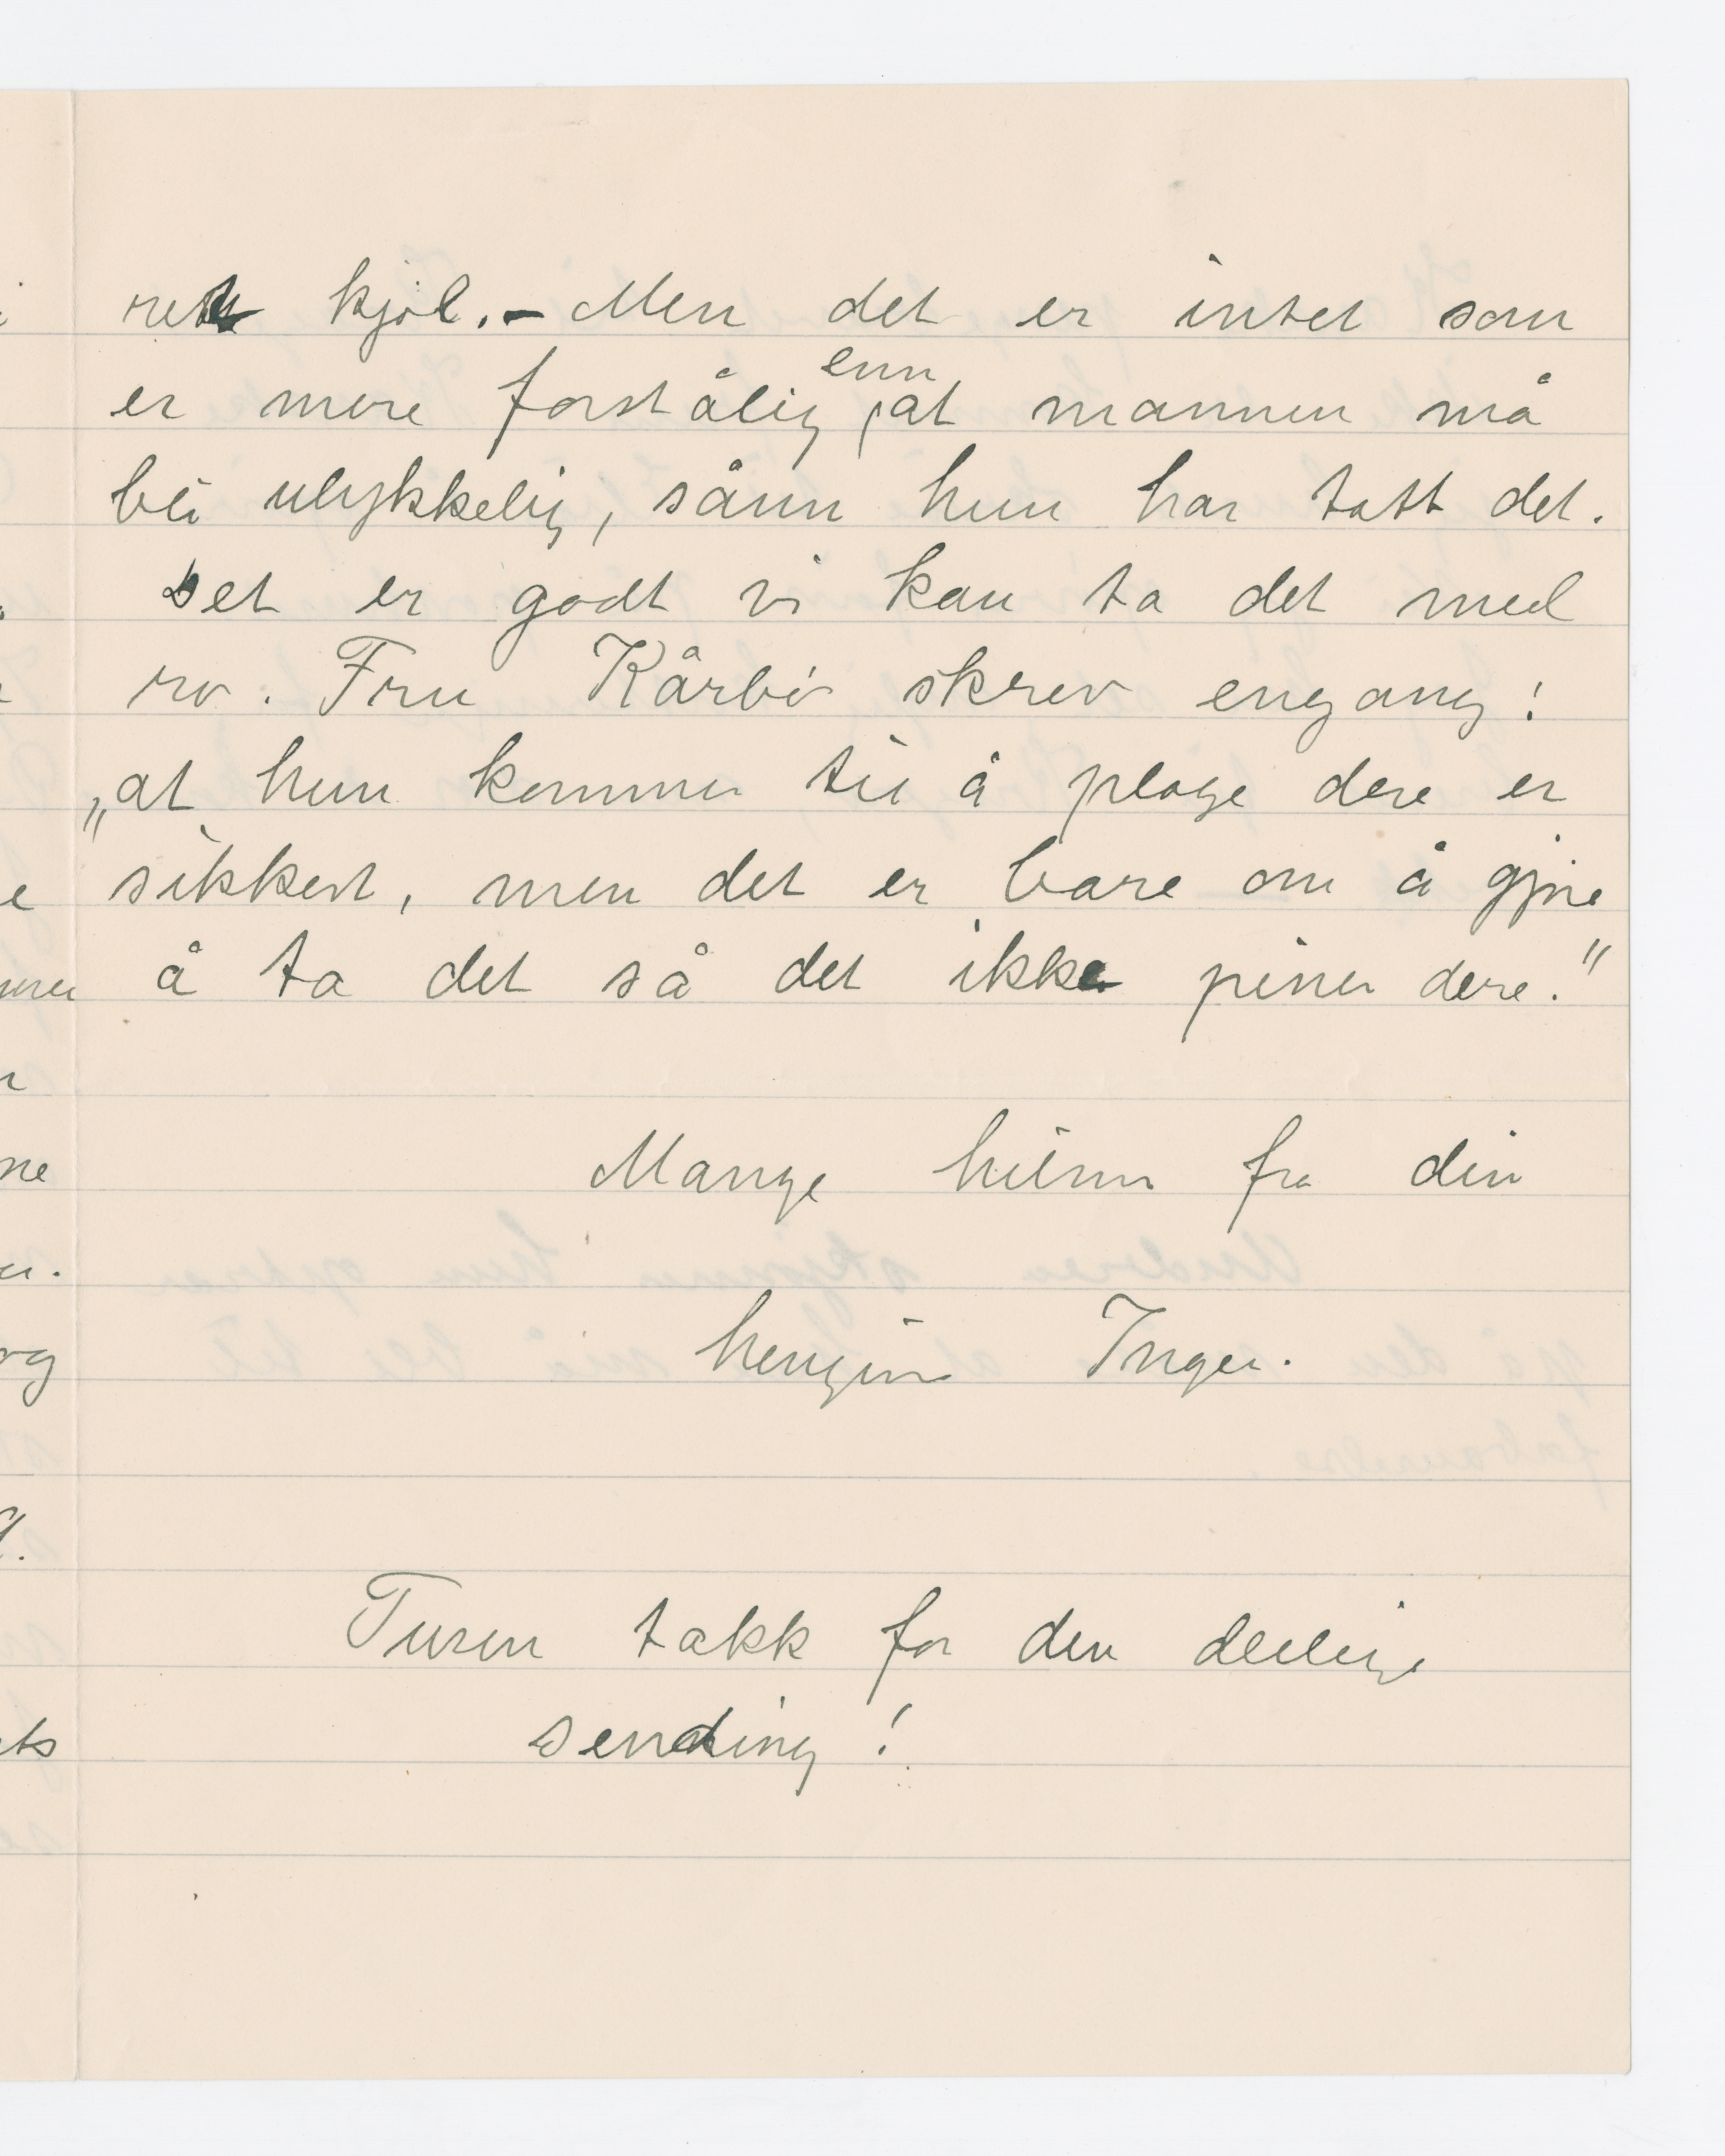 rett kjøl. - Men det er intet som
er mere forståelig enn at mannen må
bli ulykkelig, sånn hun har tatt det.
Det er godt vi kan ta det med
ro. Fru Kårbø skrev engang:
„at hun kommer til å plage dere er
sikkert, men det er bare om å gjøre
å ta det så det ikke piner dere."
Mange hilsner fra din
hengivne Inger.
Tusen takk for den deilige
sending!